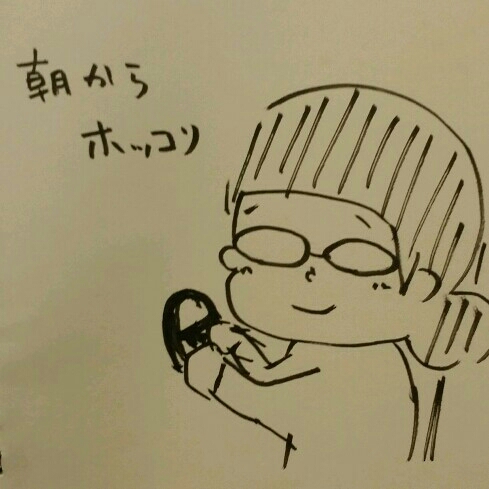 朝から
ホッコリ